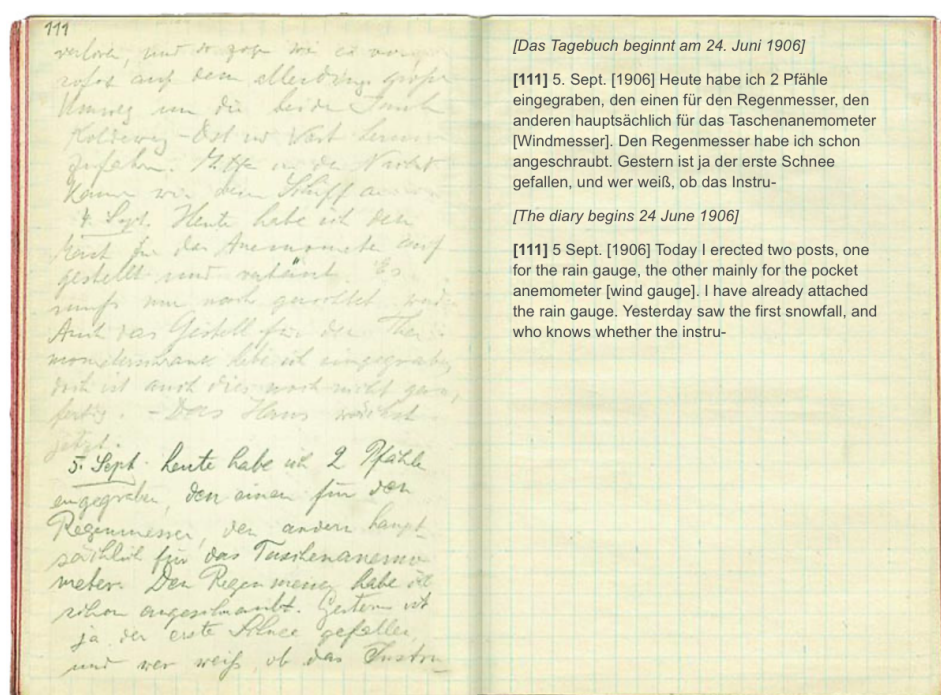 111
verloren, und so zogen wir es vor,
sofort auf dem allerdings große
Umweg um die beiden Inseln
Koldewey-Ost und West herum
zufahren. Mitte in der Nacht
kamen wir dem Schiff an
4. Sept. Heute habe ich den
Mast für das Anemometer auf
gestellt und vertäut. Es
muß nun noch gerichtet werden
Auch das Gestell für den Ther-
mometerschrank habe ich eingegraben,
doch ist auch dies noch nicht ganz
fertig. - Das Haus wächst
jetzt.
5. Sept. heute habe ich 2 Pfähle
eingegraben, den einen für den
Regenmesser, den andern haupt-
sächlich für das Taschenanemo-
meter. Den Regenmesser habe ich
schon angeschraubt. Gestern ist
ja der erste Schnee gefallen,
und wer weiß, ob das Instru-
[Das Tagebuch beginnt am 24. Juni 1906]
[111] 5. Sept. [1906] Heute habe ich 2 Pfähle
eingegraben, den einen für den Regenmesser, den
anderen hauptsächlich für das Taschenanemometer
[Windmesser]. Den Regenmesser habe ich schon
angeschraubt. Gestern ist ja der erste Schnee
gefallen, und wer weiß, ob das Instru-
[The diary begins 24 June 1906]
[111] 5 Sept. [1906] Today I erected two posts, one
for the rain gauge, the other mainly for the pocket
anemometer [wind gauge]. I have already attached
the rain gauge. Yesterday saw the first snowfall, and
who knows whether the instru-